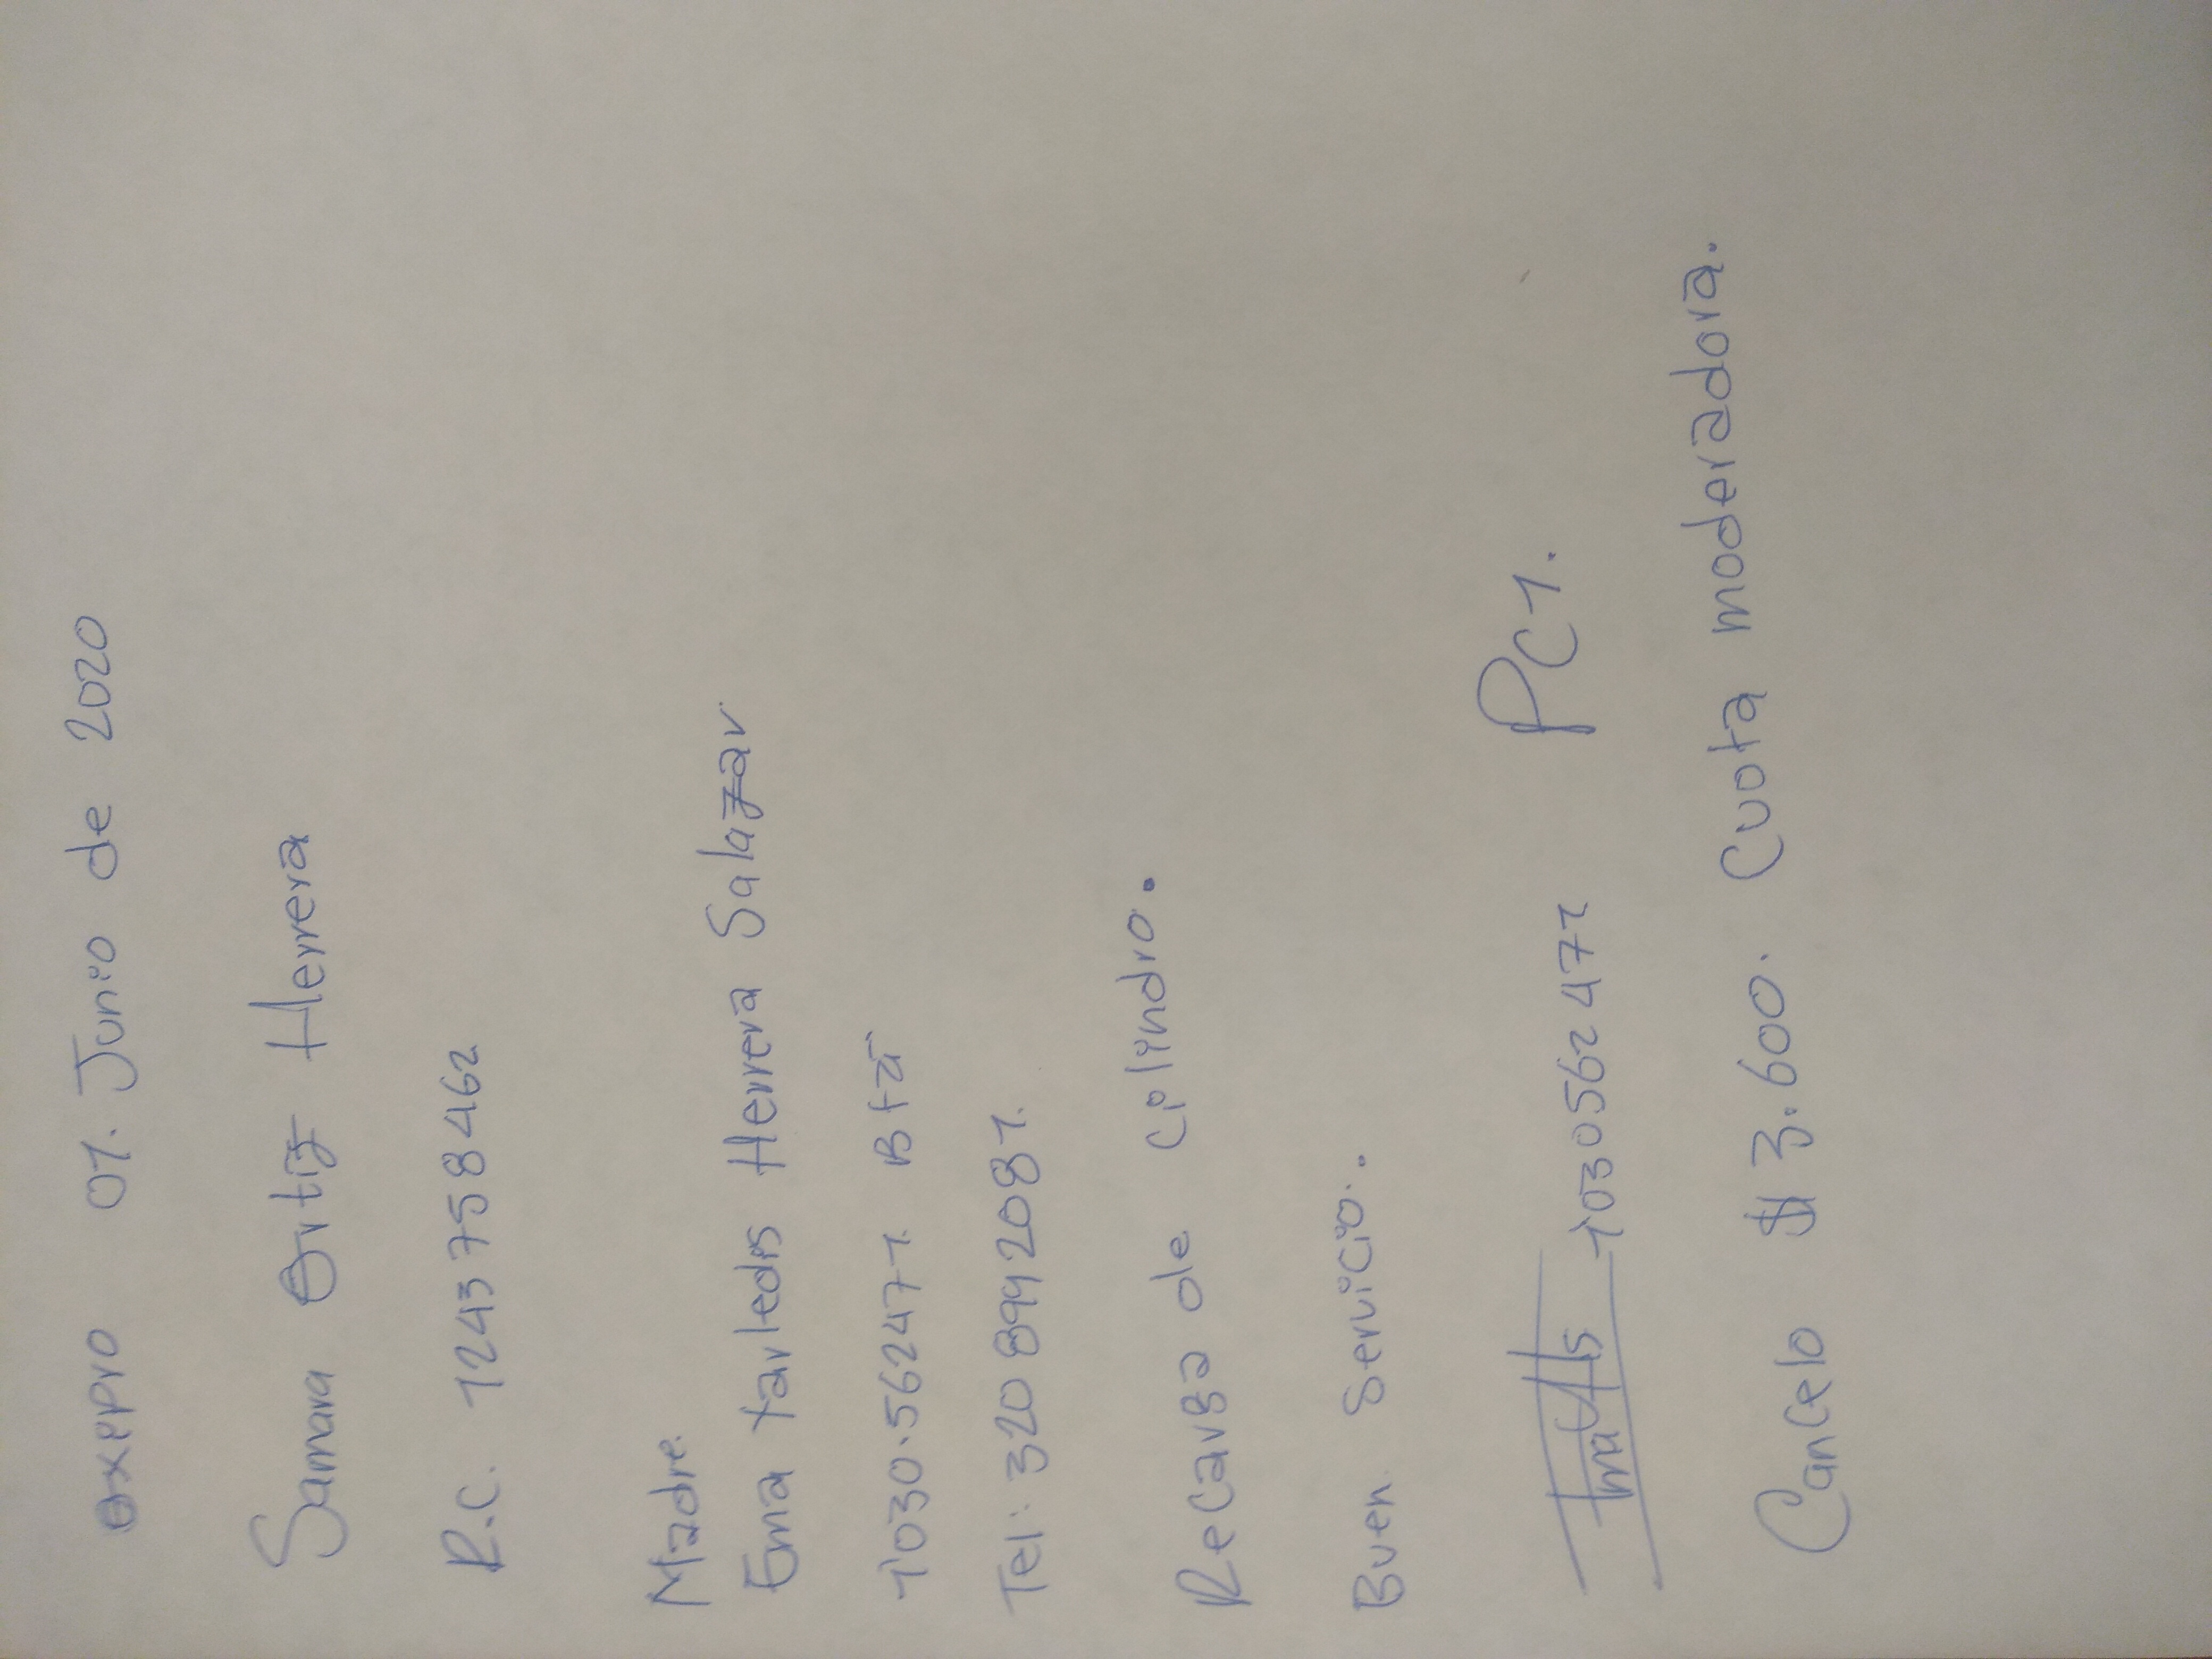 oxipro 01. Junio de 2020
Samara Ortiz Herrera
R.C. 1243758462
Madre.
Ema Yarledis Herrera Salazar
1030.562471. Bta
Tel: 320 8992081.
Recarga de Cilindro.
Buen Servicio.
1030562471 PC1.
Cancelo $ 3.600. Cuota moderadora.